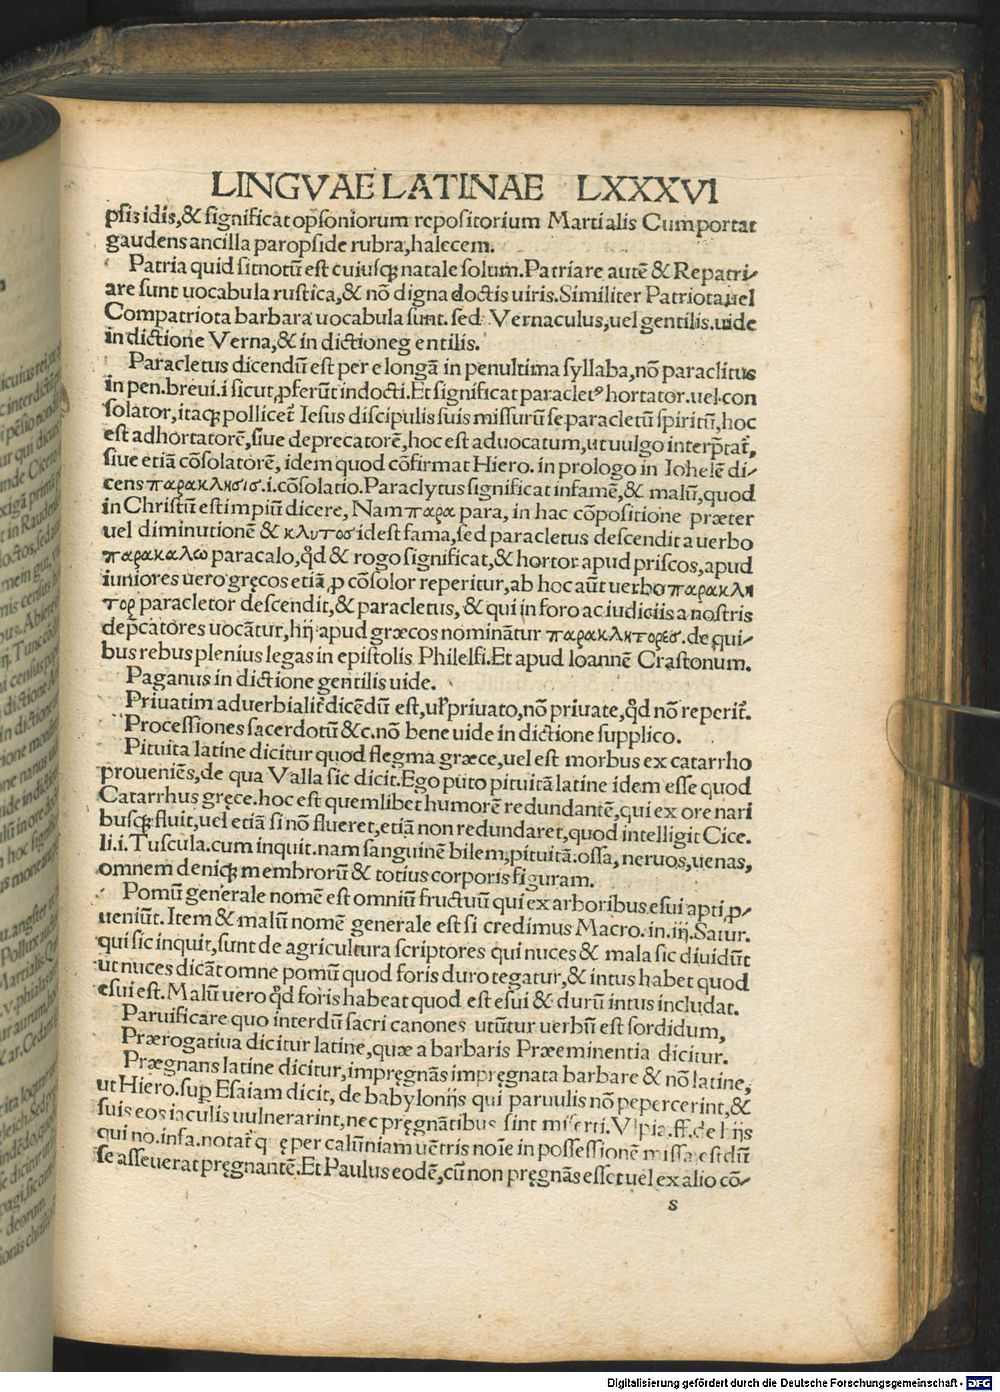 LINGVAE LATINAE LXXXVI
psis idis,& significat opsoniorum repositorium Martialis Cum portat
gaudens ancilla paropside rubra, halecem.
Patria quid sit notũ est cuiusqꝫ natale solum. Patriare autẽ & Repatri-
are sunt uocabula rustica,& nõ digna doctis uiris. Similiter Patriota, uel
Compatriota barbara uocabula sunt. sed Vernaculus, uel gentilis. uide
in dictione Verna,& in dictione g entilis.
Paracletus dicendũ est per e longã in penultima syllaba, nõ paraclitus
in pen. breui. i sicut ꝓferũt indocti. Et significat paracletꝰ hortator. uel con
solator, itaqꝫ pollicet̃ Iesus discipulis suis missurũ se paracletũ spiritũ, hoc
est adhortatorẽ, siue deprecatorẽ, hoc est aduocatum, ut uulgo interp̃tat̃,
siue etiã cõsolatorẽ, idem quod cõfirmat Hiero. in prologo in Iohelẽ di-
cens παρακλησισ .i. cõsolatio. Paraclytus significat infamẽ,& malũ, quod
in Christũ est impiũ dicere, Nam παρα para, in hac cõpositione præter
uel diminutionẽ & κλυτοσ id est fama, sed paracletus descendit a uerbo
παρακαλω paracalo, qď & rogo significat,& hortor apud priscos, apud
iuniores uero gręcos etiã ꝓ cõsolor reperitur, ab hoc aũt uerbo παρακλη
τορ paracletor descendit,& paracletus, & qui in foro ac iudiciis a nostris
dep̃catores uocãtur, hij apud græcos nominãtur παρακλητορεσ. de qui-
bus rebus plenius legas in epistolis Philelfi. Et apud Ioannẽ Crastonum.
Paganus in dictione gentilis uide.
Priuatim aduerbialiť dicẽdũ est, uł priuato, nõ priuate, qď nõ reperit̃.
Processiones sacerdotũ &c. nõ bene uide in dictione supplico.
Pituita latine dicitur quod flegma græce, uel est morbus ex catarrho
proueniẽs, de qua Valla sic dicit. Ego puto pituitã latine idem esse quod
Catarrhus gręce. hoc est quemlibet humorẽ redundantẽ, qui ex ore nari
busqꝫ fluit, uel etiã si nõ flueret, etiã non redundaret, quod intelligit Cice.
li. i. Tuscula. cum inquit. nam sanguinẽ bilem, pituitã. ossa, neruos, uenas,
omnem deniqꝫ membrorũ & totius corporis figuram.
Pomũ generale nomẽ est omniũ fructuũ qui ex arboribus esui apti ꝓ-
ueniũt. Item & malũ nomẽ generale est si credimus Macro. in. iij. Satur.
qui sic inquit, sunt de agricultura scriptores qui nuces & mala sic diuidũt
ut nuces dicãt omne pomũ quod foris duro tegatur,& intus habet quod
esui est. Malũ uero qď foris habeat quod est esui & durũ intus includat.
Paruificare quo interdũ sacri canones utũtur uerbũ est sordidum,
Prærogatiua dicitur latine, quæ a barbaris Præeminentia dicitur.
Prægnans latine dicitur, impręgnãs impręgnata barbare & nõ latine,
ut Hiero. sup̱ Esaiam dicit, de babylonijs qui paruulis nõ pepercerint,&
suis eos iaculis uulnerarint, nec pręgnãtibus sint miserti. Vlpia. ff. de hijs
qui no. infa. notat̃ q ę per calũniam uẽtris noĩe in possessionẽ missa est dũ
se asseuerat pręgnantẽ. Et Paulus eodẽ, cũ non pręgnãs esset uel ex alio cõ-
s
Digitalisierung gefördert durch die Deutsche Forschungsgemeinschaft - DFG